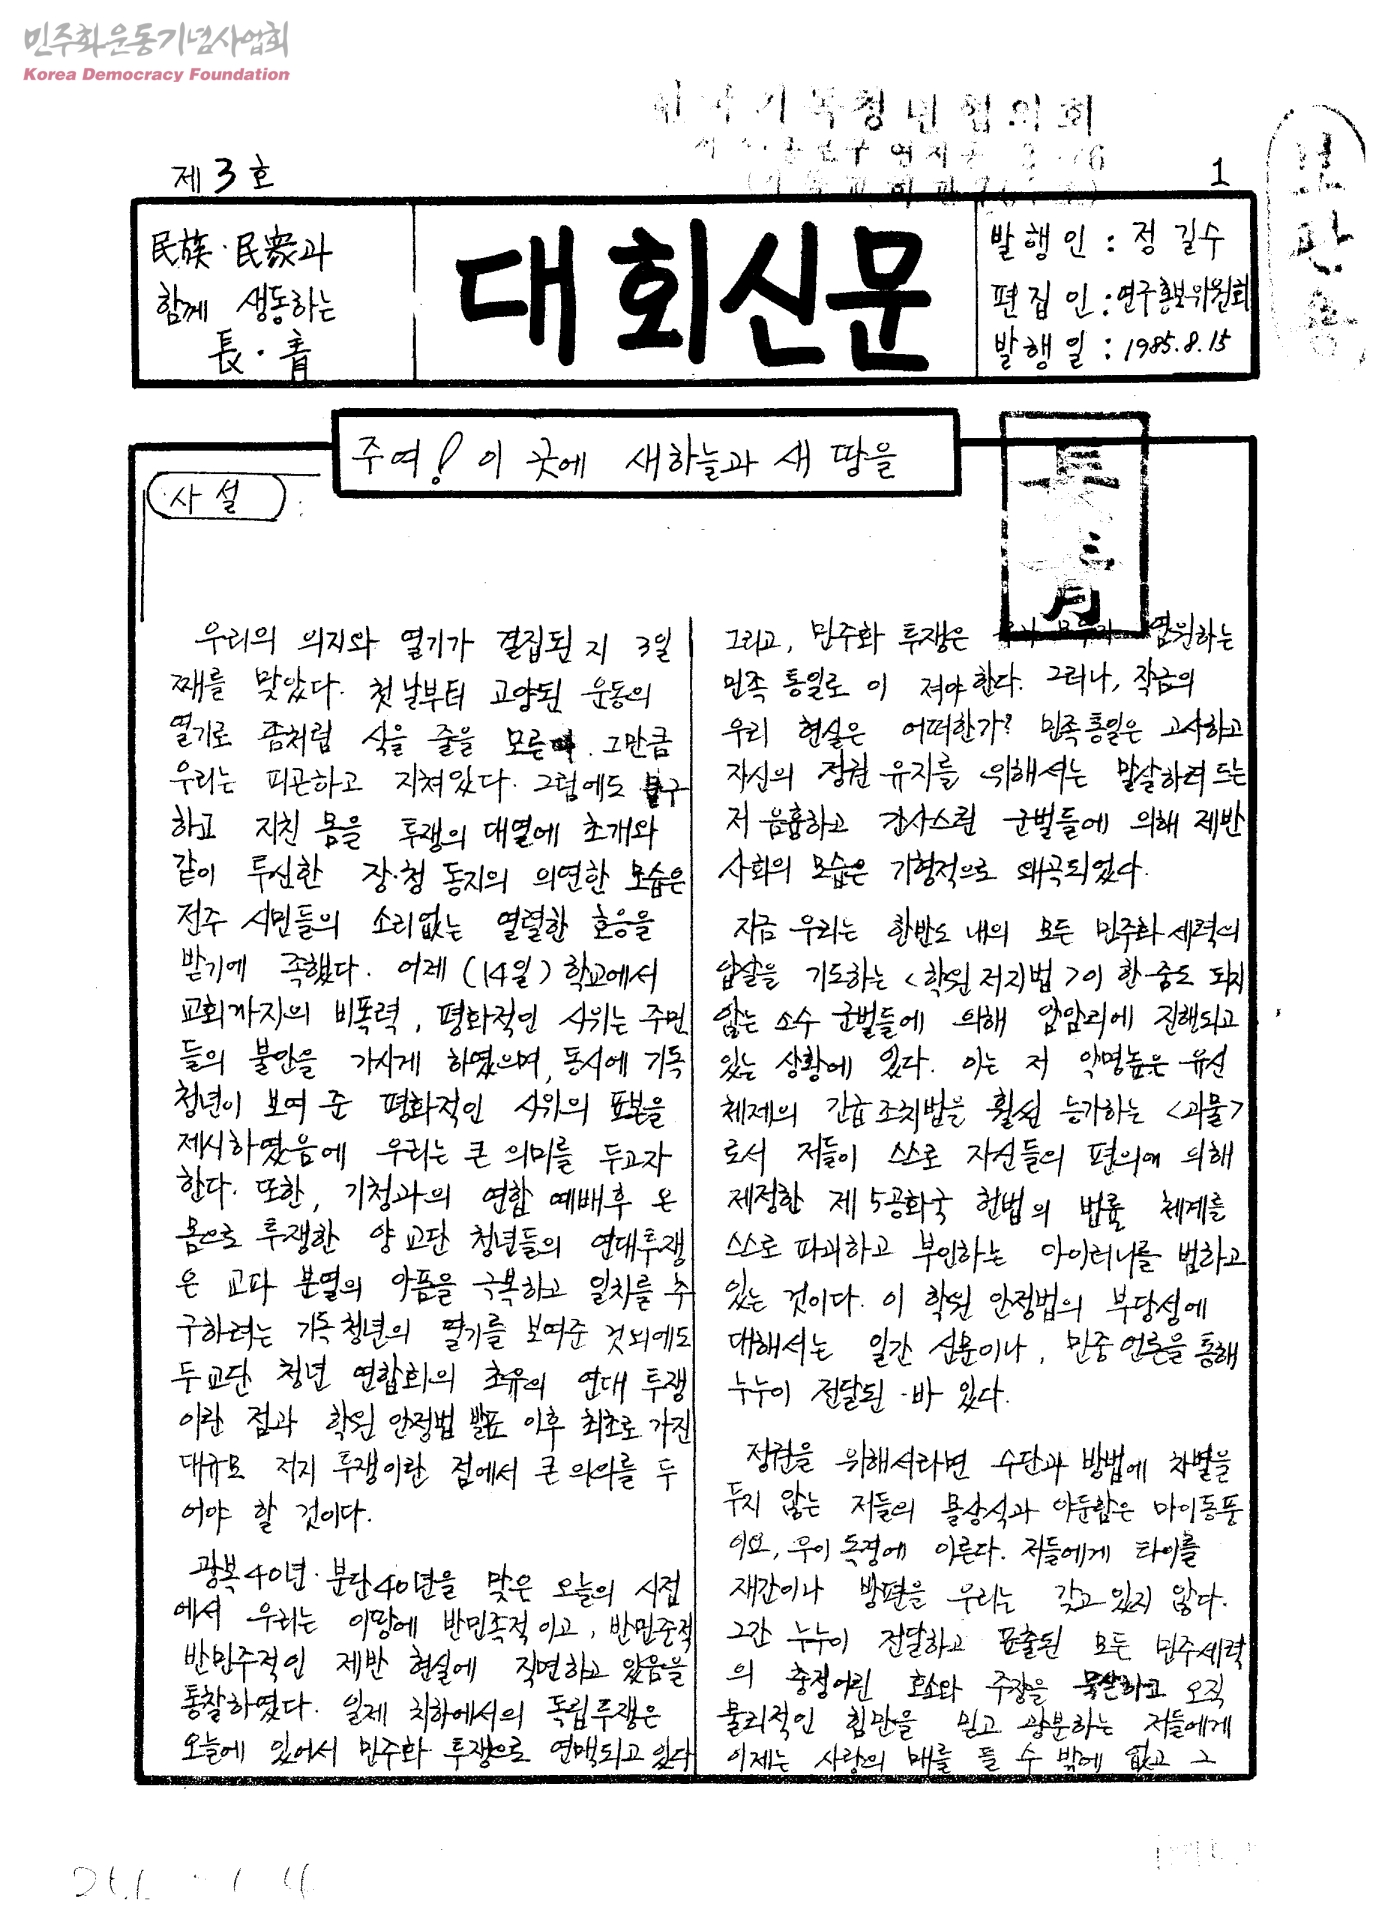 민주화운동기념사업회
Korea Democracy Foundation
제3호
1
民族·民衆과
함께 생동하는
長·靑
대회신문
발행인 : 정길수
편집인 : 연구홍보위원회
발행일 : 1985.8.15
보관용
주여! 이 곳에 새하늘과 새 땅을
長靑
사설
우리의 의지와 열기가 결집된 지 3일
째를 맞았다. 첫날부터 고양된 운동의
열기로 좀처럼 식을 줄을 모른다. 그만큼
우리는 피곤하고 지쳐있다. 그럼에도 불구
하고 지친 몸을 투쟁의 대열에 초개와
같이 투신한 장·청 동지의 의연한 모습은
전주 시민들의 소리없는 열렬한 호응을
받기에 족했다. 어제 (14일) 학교에서
교회까지의 비폭력, 평화적인 시위는 주민
들의 불안을 가시게 하였으며, 동시에 기독
청년이 보여 준 평화적인 시위의 표본을
제시하였음에 우리는 큰 의미를 두고자
한다. 또한, 기청과의 연합 예배후 온
몸으로 투쟁한 양 교단 청년들의 연대투쟁
은 교파 분열의 아픔을 극복하고 일치를 추
구하려는 기독청년의 열기를 보여준 것외에도
두 교단 청년 연합회의 초유의 연대 투쟁
이란 점과 학원 안정법 발표 이후 최초로 가진
대규모 저지 투쟁이란 점에서 큰 의의를 두
어야 할 것이다.
광복40년·분단40년을 맞은 오늘의 시점
에서 우리는 이땅에 반민족적이고, 반민중적
반민주적인 제반 현실에 직면하고 있음을
통찰하였다. 일제 치하에서의 독립투쟁은
오늘에 있어서 민주화 투쟁으로 연맥되고 있다
그리고, 민주화 투쟁은 염원하는
민족 통일로 이 져야 한다. 그러나, 작금의
우리 현실은 어떠한가? 민족통일은 고사하고
자신의 정권 유지를 위해서는 말살하려 드는
저 음흉하고 간사스런 군벌들에 의해 제반
사회의 모습은 기형적으로 왜곡되었다.
지금 우리는 한반도 내의 모든 민주화 세력의
압살을 기도하는 <학원 저지법>이 한 줌도 되지
않는 소수 군벌들에 의해 암암리에 진행되고
있는 상황에 있다. 이는 저 악명높은 유신
체제의 긴급조치법을 훨씬 능가하는 <괴물>
로서 저들이 스스로 자신들의 편의에 의해
제정한 제5공화국 헌법의 법률 체계를
스스로 파괴하고 부인하는 아이러니를 범하고
있는 것이다. 이 학원 안정법의 부당성에
대해서는 일간 신문이나, 민중 언론을 통해
누누이 전달된 바 있다.
정권을 위해서라면 수단과 방법에 차별을
두지 않는 저들의 몰상식과 아둔함은 마이동풍
이요, 우이 독경에 이른다. 저들에게 타이를
재간이나 방편을 우리는 갖고 있지 않다.
그간 누누이 전달하고 표출된 모든 민주세력
의 충정어린 호소와 주장을 묵살하고 오직
물리적인 힘만을 믿고 광분하는 저들에게
이제는 사랑의 매를 들 수 밖에 없고 그